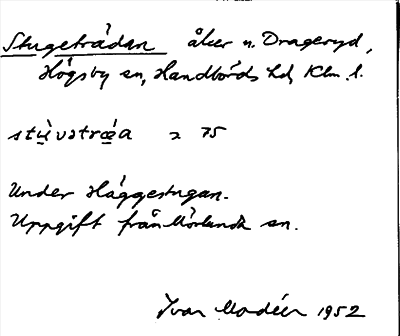 Stugeträdan åker n. Drageryd,
Högsby sn, Handbörds hd, Klm. l.
stùvətrœ́a 75
Under Häggestugan.
Uppgift från Mörlunda sn.
Ivar Modéer 1952